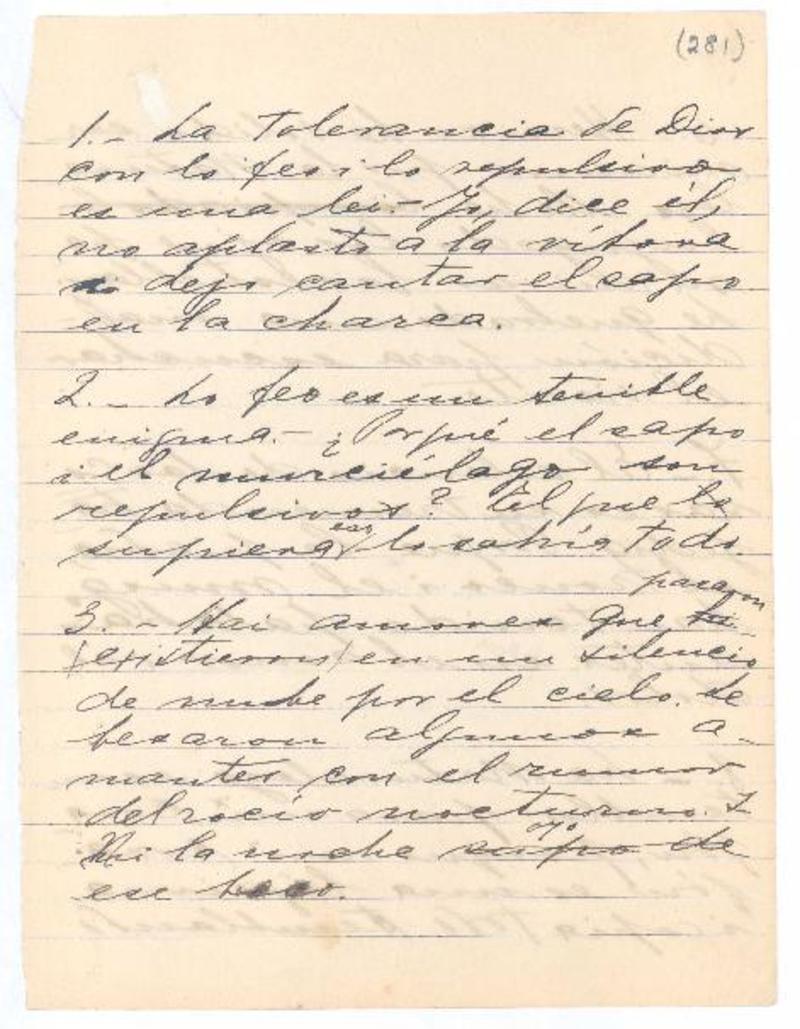 (281)
1.- La tolerancia de Dios
con lo feo i lo repulsivo
es una lei.- Yo, dice él,
no aplasto a la víbora
i dejo cantar el sapo
en la charca.
2.- Lo feo es un terrible
enigma.- ¿Porqué el sapo
i el murciélago son
repulsivos? El que lo
supiera eso lo sabría todo.
pasaron
3.- Hai amores que
(existieron) en un silencio
de nube por el cielo. Se
besaron algunos a-
mantes con el rumor
del rocío nocturno. I
Ni la noche supo de
ese beso.